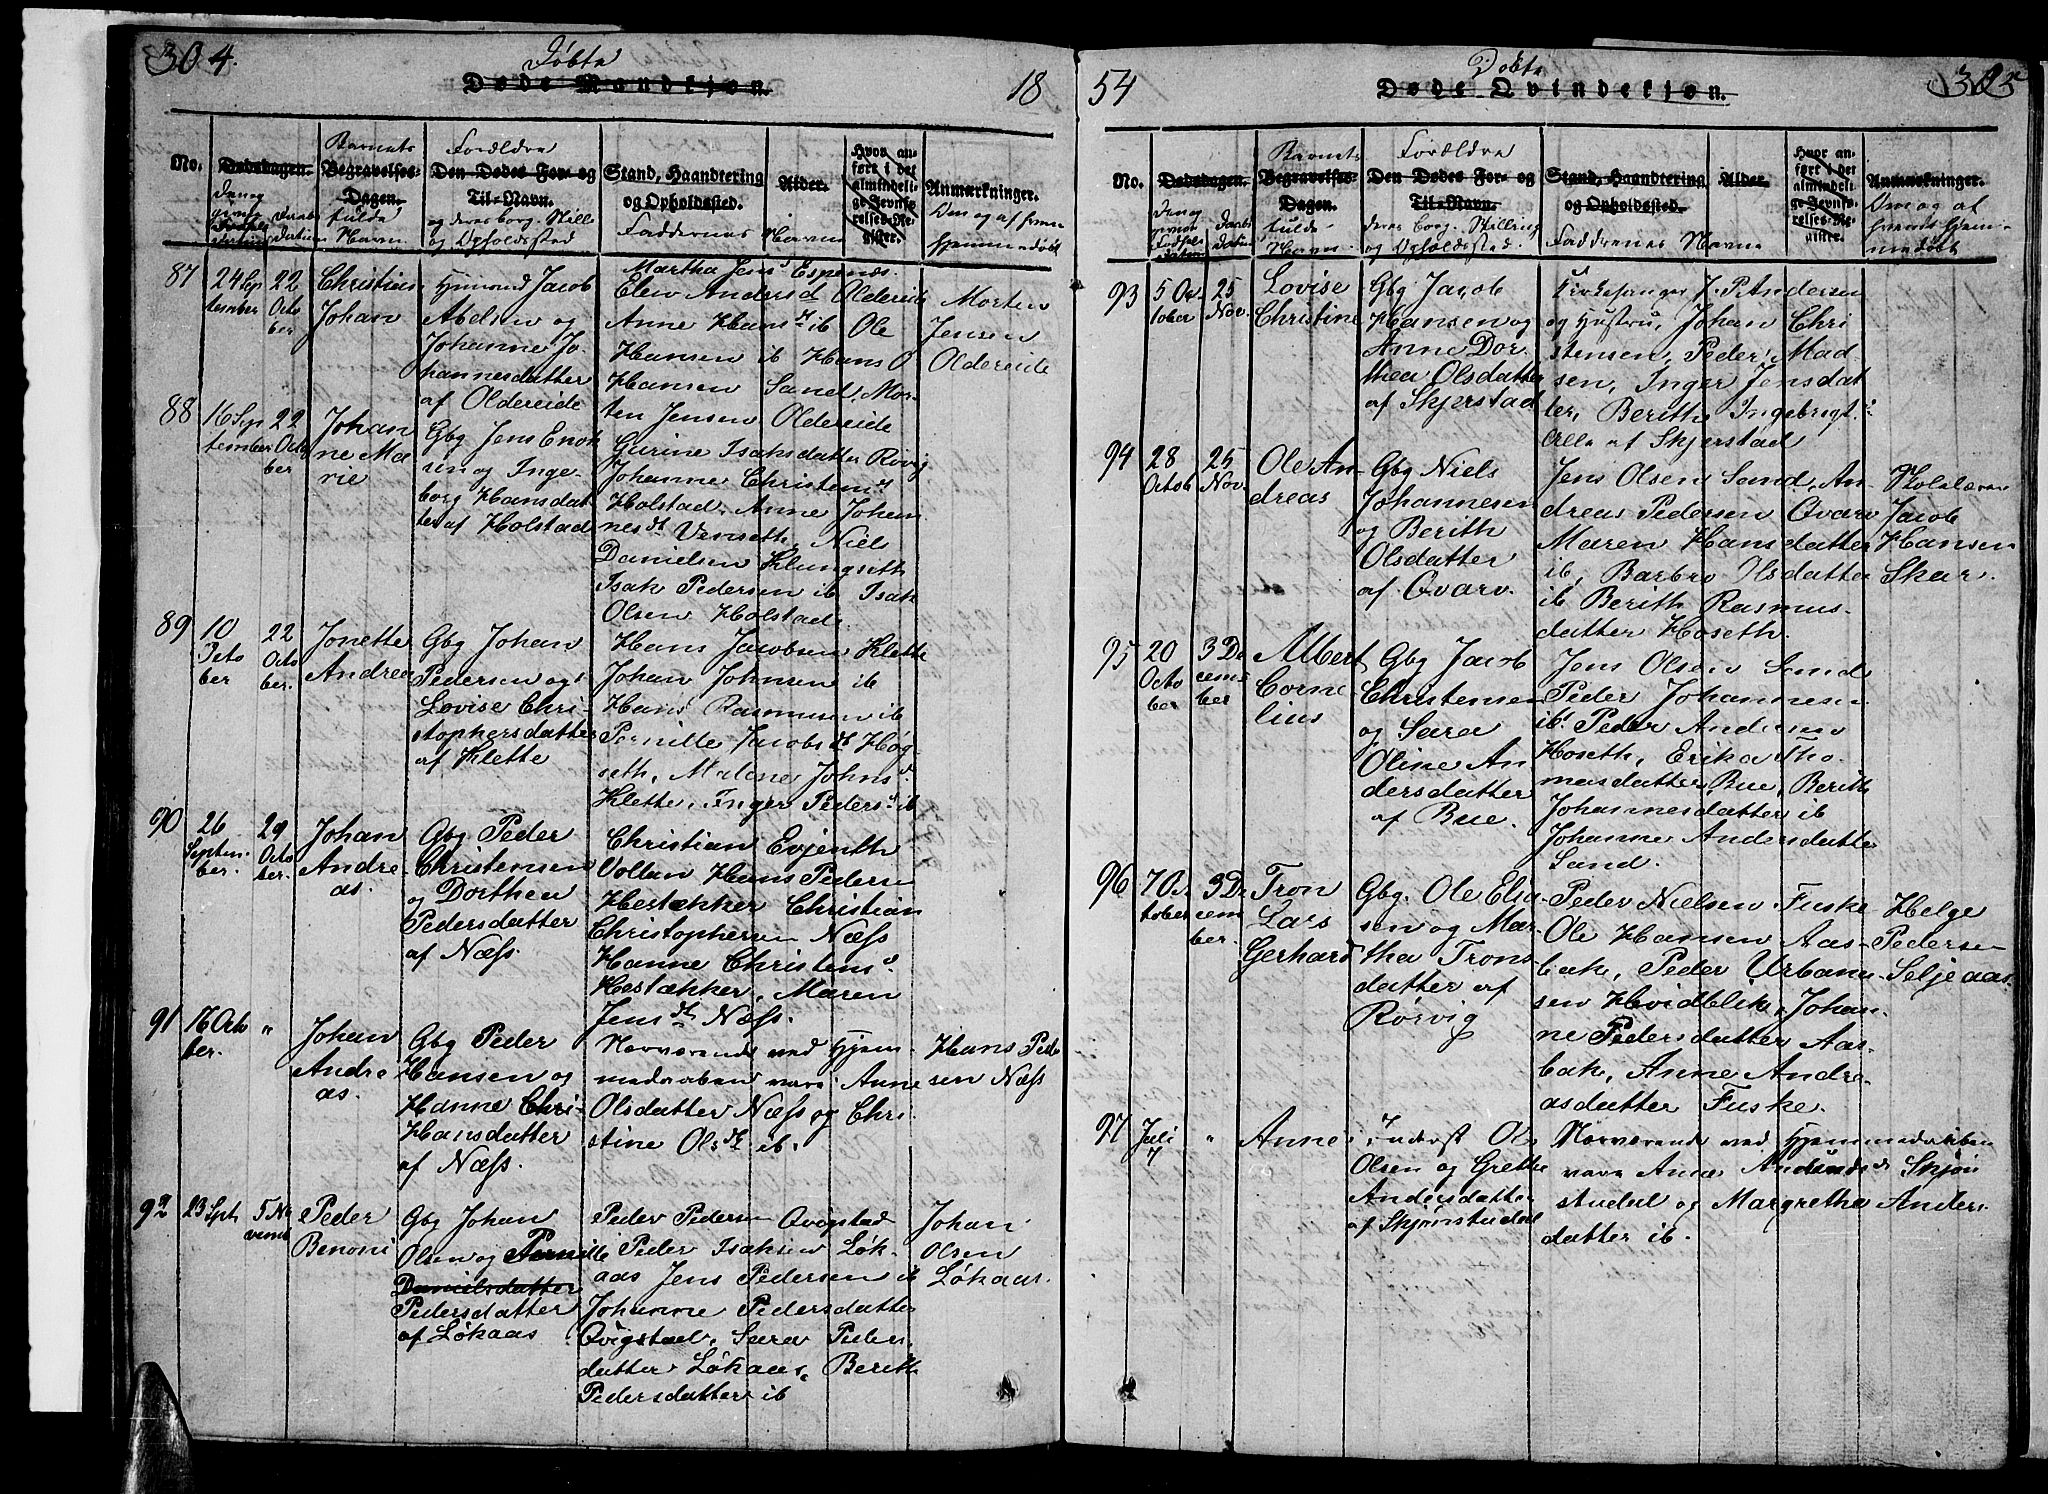 304.
Døbte
Døde Mandkjøn.
18
No.
Dødsdagen.
Barnets
Begravelses-
Dagen.
fulde
Navn
Forældre
Den Dødes For- og
Til-Navn.
og deres borg. Still.
og Opholdssted
Stand, Haandtering
og Opholdssted.
Faddernes Navne
Alder.
Hvor an-
ført i det
almindeli-
ge Jevnfø-
relses-Re-
gister.
Anmærkninger.
Om og af hvem
hjemmedøbt
87
24 Sep
tember
22
Octo
ber
Christian
Johan
Huusmand Jacob
Abelsen og
Johanne Jo-
hannesdatter
af Oldereide
Martha Jensd Espenæs
Elen Andersd Oldereide
Anne Hansdt ib Ole
Hansen ib Hans O
Hansen Sand, Mor-
ten Jensen Oldereide
Morten
Jensen
Oldereide
88
16 Sep
tember
22
Octo
ber
Johan
ne Ma
rie
Gbg Jens Enok
sen og Inge-
borg Hansdat
ter af Holstad
Gurine Isaksdatter Røvig
Johanne Christensd
Holstad, Anne Johan
nesdt Venseth, Niels
Danielsen Klungseth
Isak Pedersen ib Isak
Olsen Holstad.
89
10
Octo
ber
22
Octo
ber.
Jonette
Andrea
Gbg Johan
Pedersen og
Lovise Chri-
stophersdatter
af Klette
Hans Jacobsen Klette
Johan Johnsen ib
Hans Rasmusen ib
Pernille Jacobsdt Høg-
seth, Malene Johnsd
Klette, Inger Pedersd ib
90
26
Septem-
ber.
29
Octo
ber.
Johan
Andre
as.
Gbg Peder
Christensen
og Dorthea
Pedersdatter
af Næss.
Christian Evjenth
Vollan Hans Pedersen
Hestækker Christian
Christophersen Næss
Hanne Christensd.
Hestækker, Maren
Jensdt Næss.
91
16 Octo
ber.
"
Johan
Andre
as.
Gbg Peder
Hansen og
Hanne Chri-
Hansdatter
af Næss.
Nærværende ved Hjem-
medaaben vare: Anne
Olsdatter Næss og Chri
stine Olsdt ib.
Hans Peder
sen Næss
92
23 Sept
5 No
vemb
Peder
Benoni
Gbg Johan
Olsen og Pernille
Danielsdatter
Pedersdatter
af Løkaas
Peder Pedersen Qvigstad
Peder Isaksen Løk-
aas Jens Pedersen ib
Johanne Pedersdatter
Qvigstad, Sara Peders
datter Løkaas, Berith
Pedersdatter ib
Johan
Olsen
Løkaas.
54
Døbte
Døde Qvindekjøn.
305
No.
Dødsdagen.
Barnets
Begravelses-
Dagen.
fulde
Navn
Forældre
Den Dødes For- og
Til-Navn.
deres borg. Stilling
og Opholdssted.
Stand, Haandtering
og Opholdssted.
Faddrenes Navne
Alder.
Hvor an-
ført i det
almindeli-
ge Jevnfø-
relses-Re-
gister.
Anmærkninger.
Om og af
hvem hjem-
medøbt
93
5 Oc
tober
25
Nov.
Lovise
Christine
Gbg Jacob
Hansen og
Anne Dor-
thea Olsdatter
af Skjerstad
Kirkesanger J. P. Andersen
og Hustru, Johan Chri
stensen, Peder Mad
sen, Inger Jensdat
ter, Berith Ingebrigtd
Alle af Skjerstad
94
28
Octob
25
Nov.
Ole An-
dreas
Gbg Niels
Johannesen
og Berith
Olsdatter
af Qvarv.
Jens Olsen Sand, An-
dreas Pedersen Qvarv
Maren Hansdatter
ib, Barbro Olsdatter
ib Berith Rasmus-
datter Hoseth.
Skolelærer
Jacob
Hansen
Skar.
95
20
Octo
ber
3 De
cem
ber
Albert
Corne
lius
Gbg Jacob
Christensen
og Sara
Oline An
dersdatter
af Bue.
Jens Olsen Sand
Peder Johannesen
ib. Peder Andersen
Hoseth, Erika Tho
masdatter Bue, Berith
Johannesdatter ib
Johanne Andersdatter
Sand.
96
7 Oc
tober
3 De
cem
ber.
Tron
Lars
Gerhard
Gbg. Ole Elia-
sen og Mar-
tha Trons
datter af
Rørvig
Peder Nielsen Fuske
Ole Hansen Aas-
bak, Peder Urban-
sen Hvidblik, Johan-
ne Pedersdatter Aas-
bak, Anne Andre-
asdatter Fuske.
Helge
Pedersen
Seljeaas.
97
Juli
7
"
Anne
Inderst Ole
Olsen og Grethe
Andersdatter
af Skjønstudal
Nærværende ved Hjemmedaaben
vare Anne Amundsd Skjøn
studal og Margrethe Anders
datter ib.